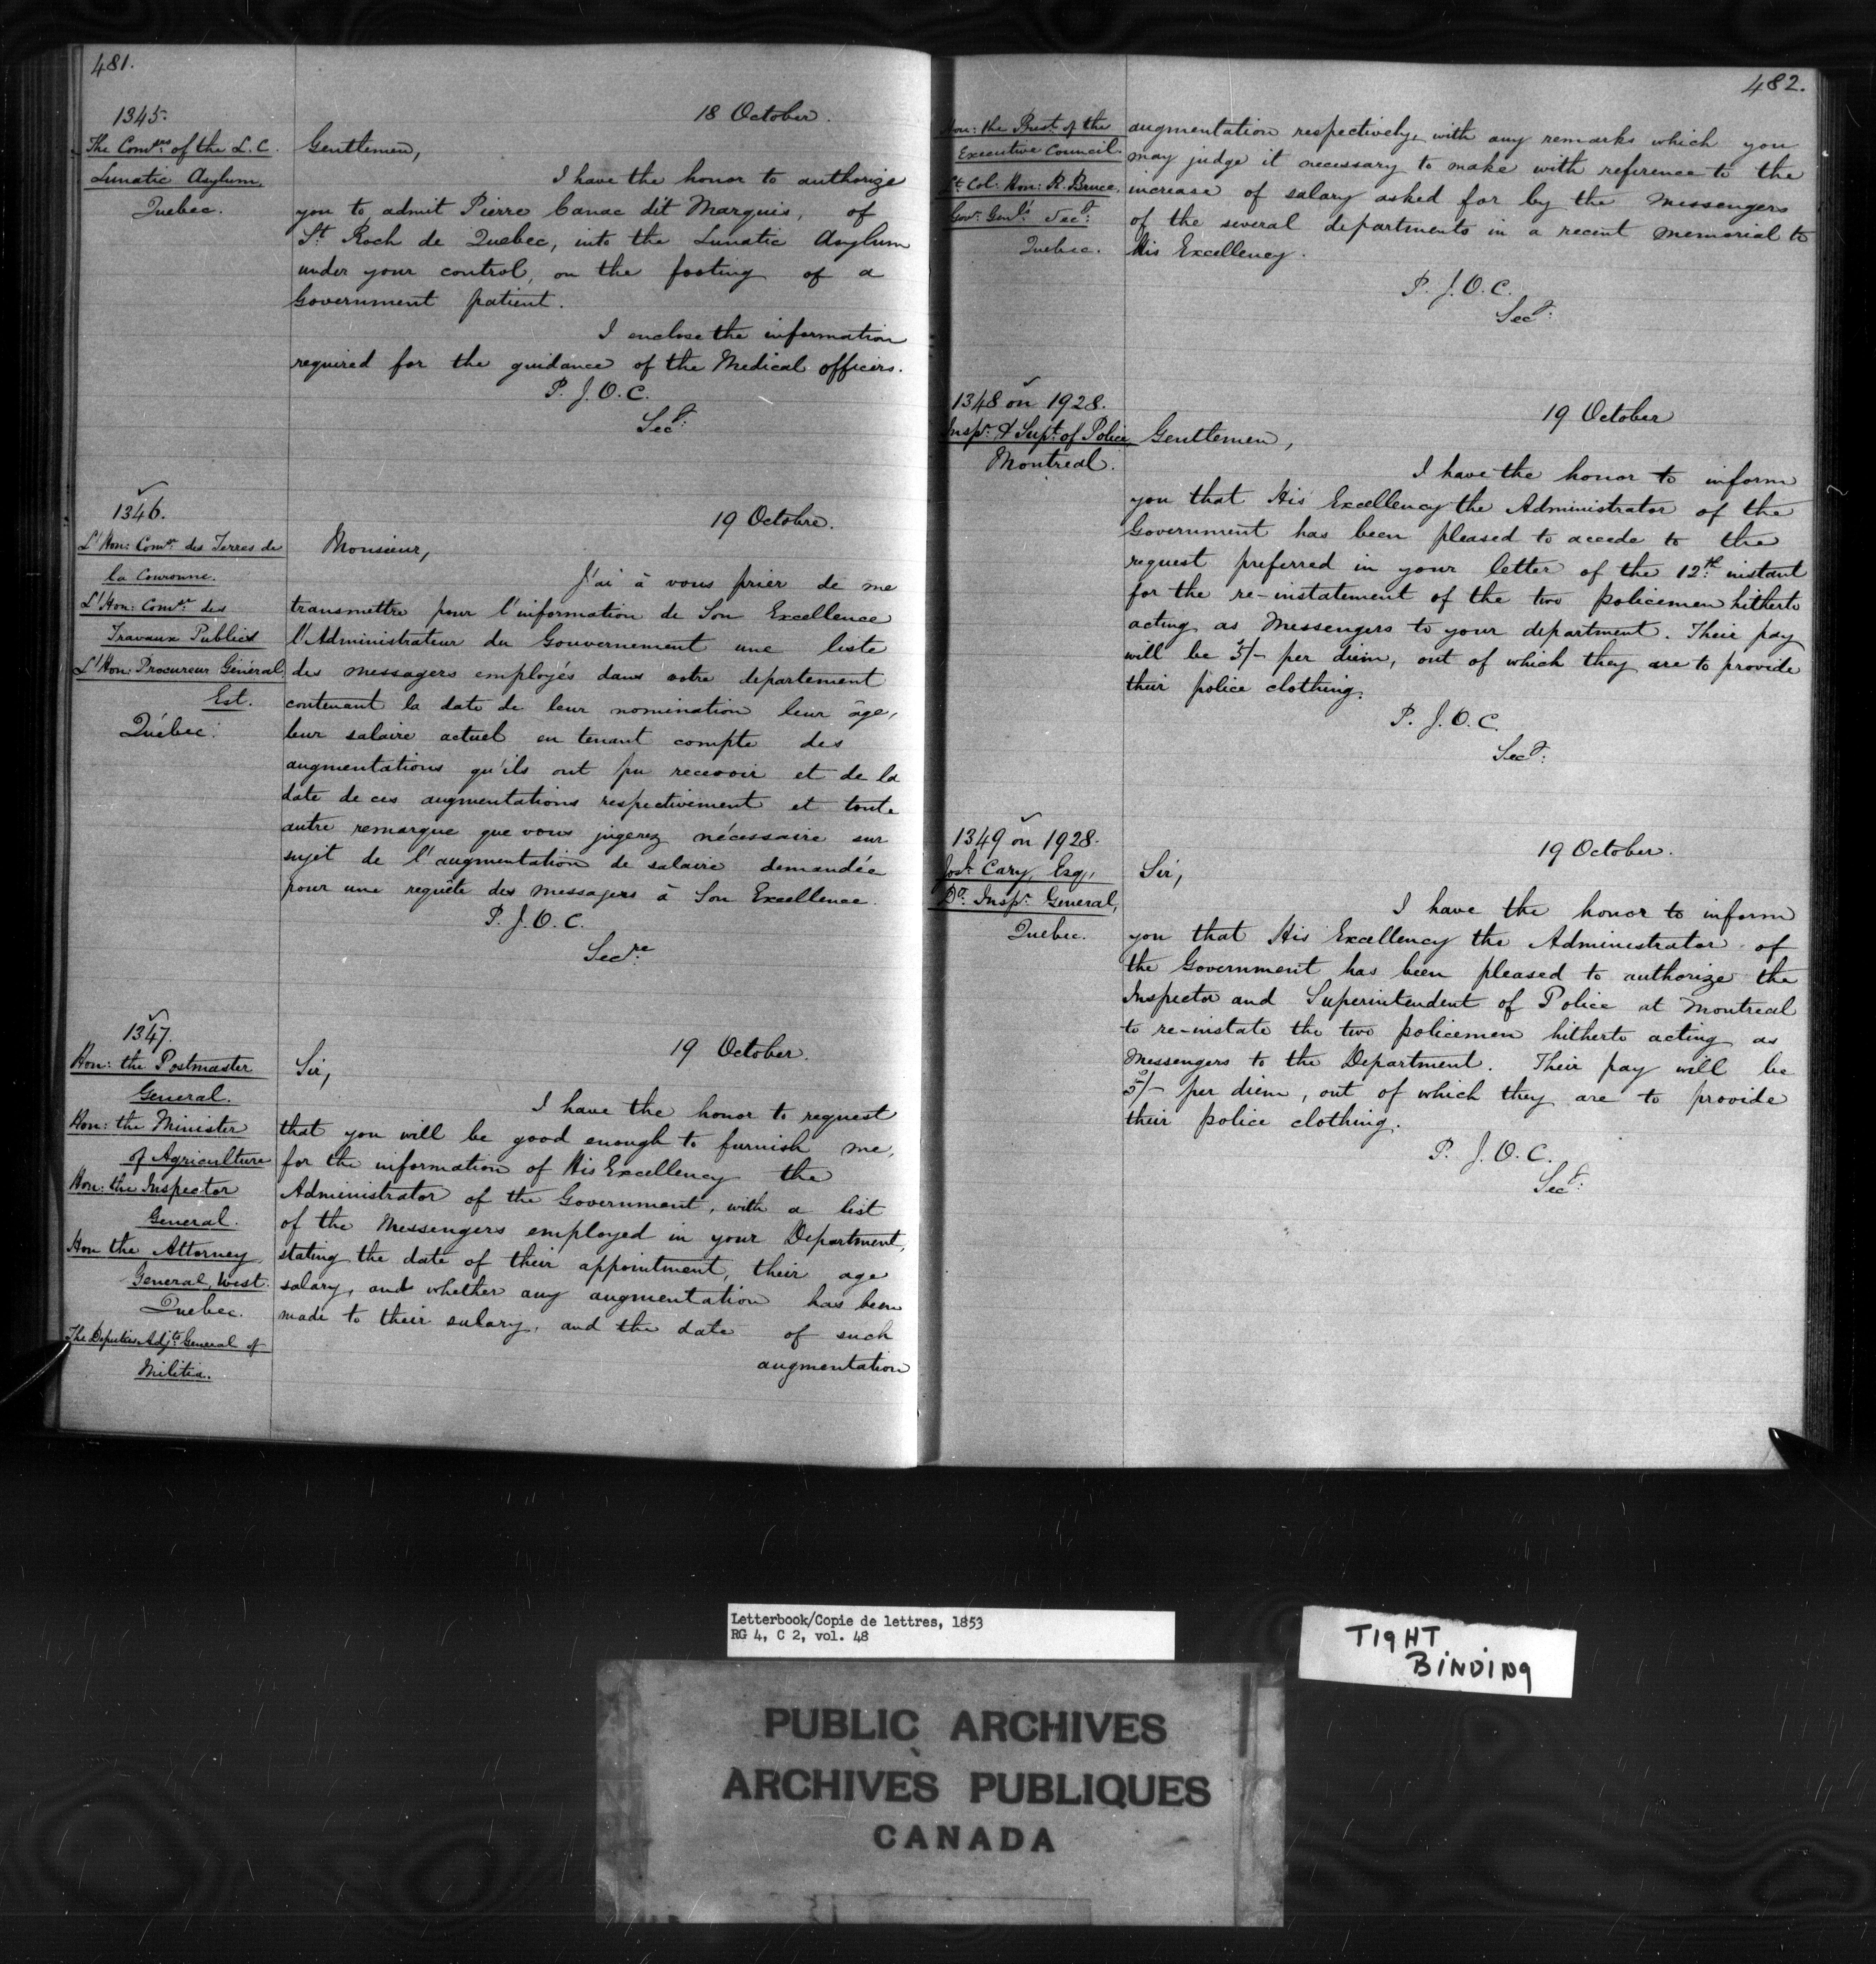 481.
1345.
18 October.
The Com.ers of the L. C.
Lunatic Asylum.
Quebec.
Gentlemen,
I have the honor to authorize
you to admit Pierre Canac dit Marquis, of
St. Roch de Quebec, into the Lunatic Asylum
under your control, on the footing of a
Government patient.
I enclose the information
required for the guidance of the Medical officers.
P. J. O. C.
Secy:
1346.
19 Octobre.
L'Hon: Com.re des Terres de
la Couronne.
L'Hon: Com.re des
Travaux Publics
L'Hon: Procureur Général
Est.
Québec.
Monsieur,
J'ai à vous prier de me
transmettre pour l'information de Son Excellence
l'Administrateur du Gouvernement une liste
des messagers employés dans votre departement
contenant la date de leur nomination leur âge,
leur salaire actuel en tenant compte des
augmentations qu'ils ont pu recevoir et de la
date de ces augmentations respectivement et toute
autre remarque que vous jugerez nécessaire sur
sujet de l'augmentation de salaire demandée
pour une requête des messagers à Son Excellence.
P. J. O. C.
Secre
1347.
19 October.
Hon: the Postmaster
General.
Hon: the Minister
of Agriculture
Hon: the Inspector
General.
Hon the Attorney
General, West.
Quebec.
The Deputies Adjts General of
Militia.
Sir,
I have the honor to request
that you will be good enough to furnish me,
for the information of His Excellency the
Administrator of the Government, with a list
of the Messengers employed in your Department,
stating the date of their appointment, their age
salary, and whether any augmentation has been
made to their salary, and the date of such
augmentation
482.
Hon: the Prest. of the
Executive Council.
Lt. Col. Hon: R. Bruce.
Gov. Genl. Secy:
Quebec.
augmentation respectively, with any remarks which you
may judge it necessary to make with reference to the
increase of salary asked for by the Messengers
of the several departments in a recent memorial to
His Excellency.
P. J. O. C.
Secy:
1348 on 1928.
19 October
Insp. & Supt. of Police
Montreal.
Gentlemen,
I have the honor to inform
you that His Excellency the Administrator of the
Government has been pleased to accede to the
request preferred in your letter of the 12th instant
for the re-instatement of the two policemen hitherto
acting as Messengers to your department. Their pay
will be 5/- per diem, out of which they are to provide
their police clothing.
P. J. O. C.
Secy:
1349 on 1928.
19 October.
Josh. Cary, Esq,
Do. Insp. General,
Quebec.
Sir,
I have the honor to inform
you that His Excellency the Administrator of
the Government has been pleased to authorize the
Inspector and Superintendent of Police at Montreal
to re-instate the two policemen hitherto acting as
Messengers to the Department. Their pay will be
5/- per diem, out of which they are to provide
their police clothing.
P. J. O. C.
Secy:
Letterbook/Copie de lettres, 1853
RG 4, C 2, vol. 48
TIGHT
BINDING
PUBLIC ARCHIVES
ARCHIVES PUBLIQUES
CANADA